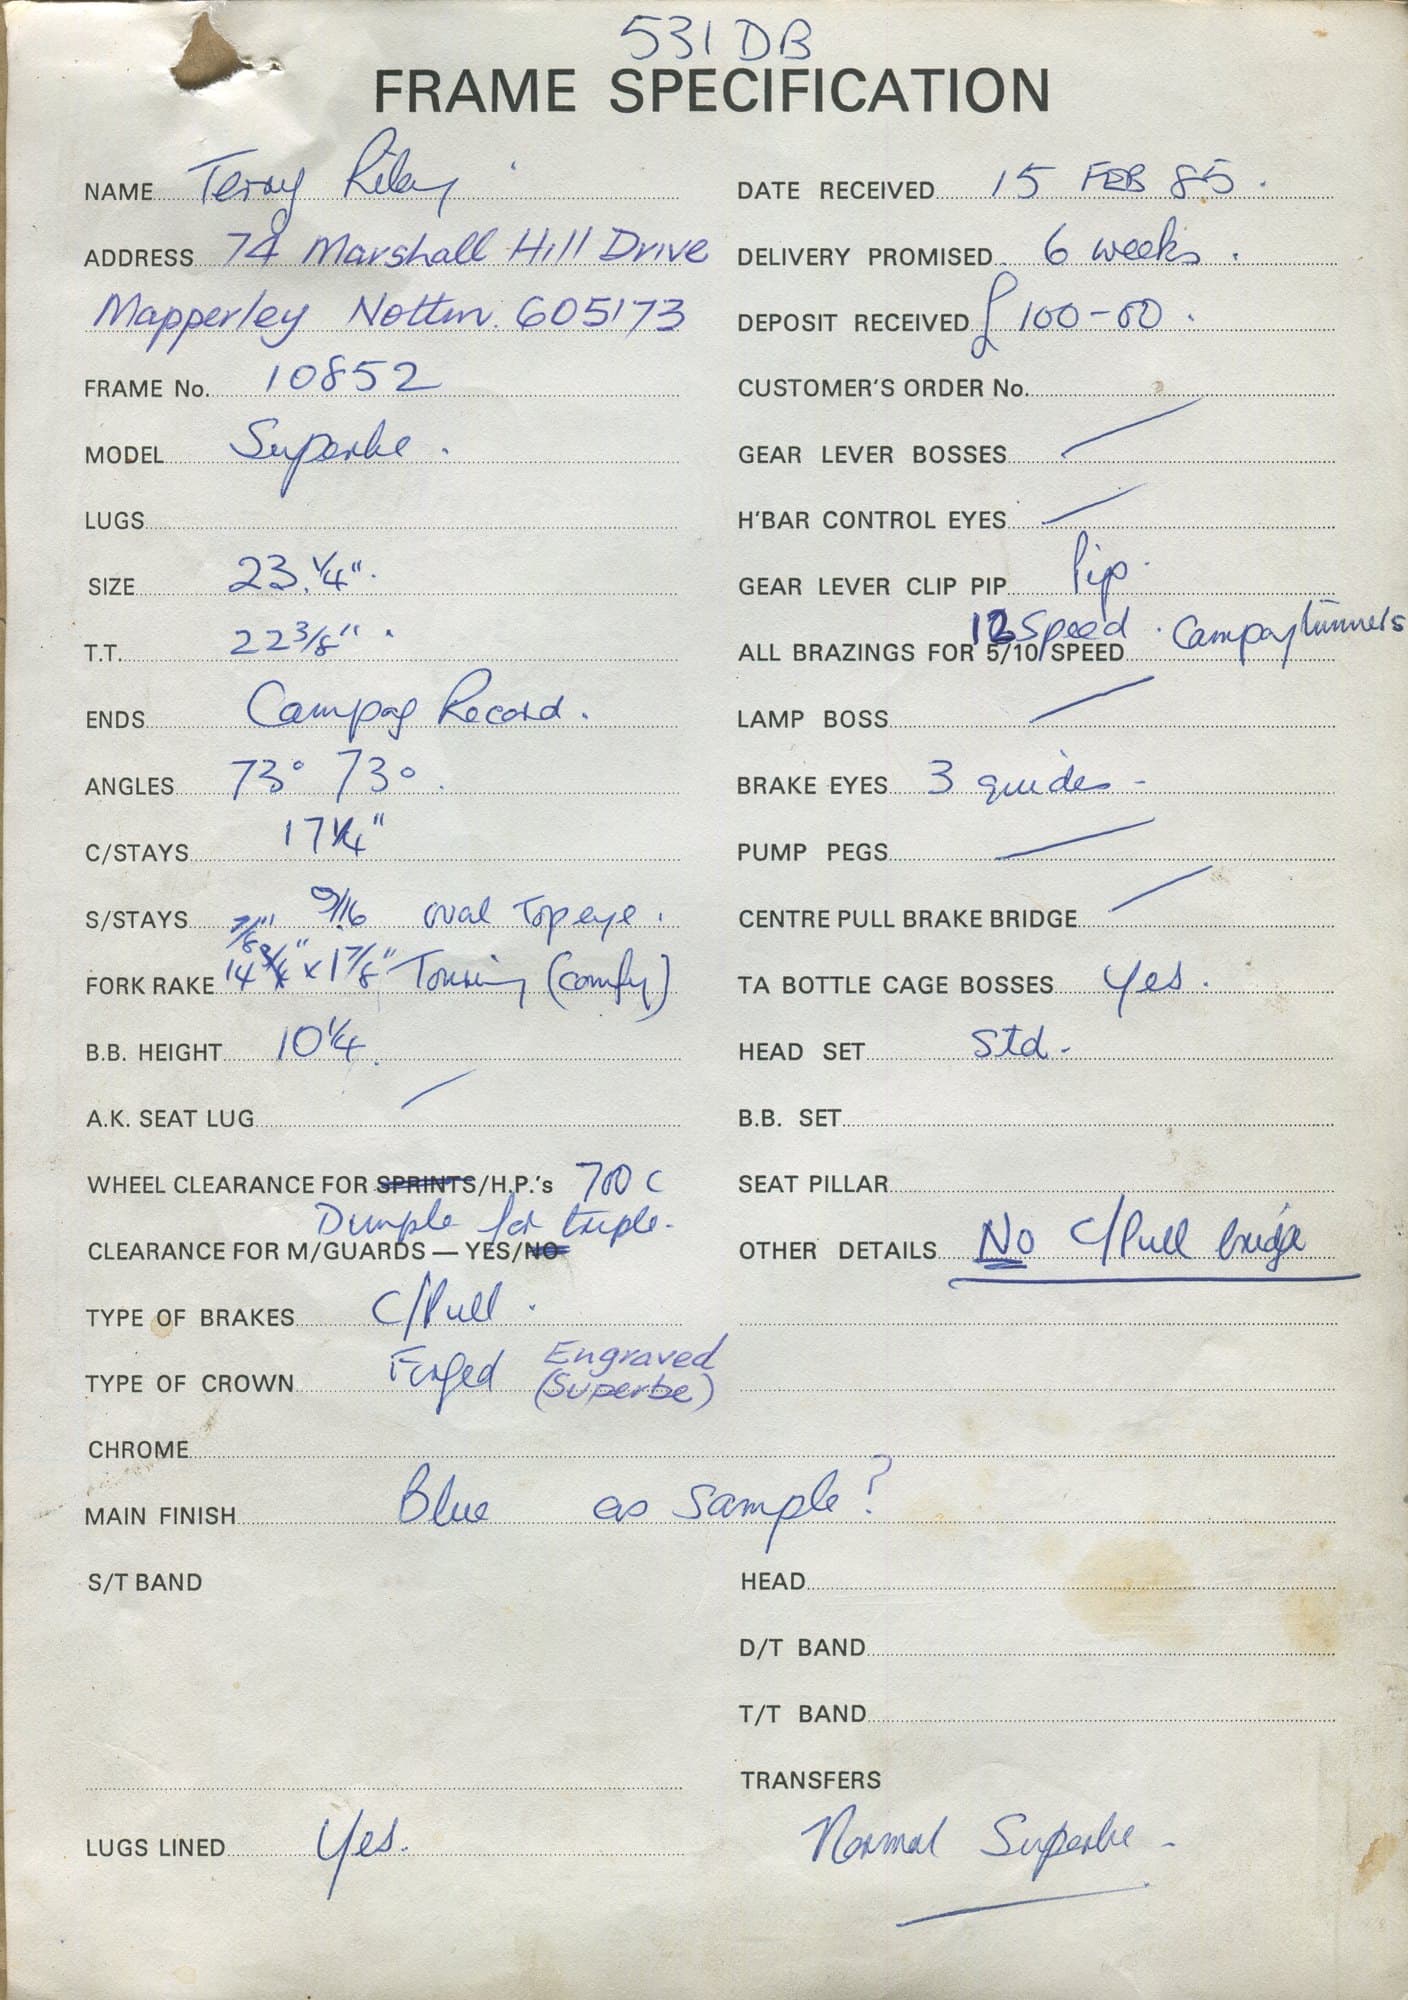 531 DB
FRAME SPECIFICATION
NAME Terry Riley
ADDRESS 74 Marshall Hill Drive
Mapperley Nottm. 605173
FRAME No. 10852
MODEL Superbe.
LUGS
SIZE 23.1/4".
T.T. 22 3/8".
ENDS Campag Record.
ANGLES 73° 73°.
C/STAYS 17 1/4"
S/STAYS 9/16 oval Top eye.
7/8"
FORK RAKE 14 3/8" x 1 7/8" Touring (comfy)
B.B. HEIGHT 10 1/4.
A.K. SEAT LUG /
WHEEL CLEARANCE FOR SPRINTS/H.P.'s 700 c
Dimple for triple.
CLEARANCE FOR M/GUARDS — YES/NO
TYPE OF BRAKES C/Pull.
TYPE OF CROWN Forged Engraved
(Superbe)
CHROME
MAIN FINISH Blue as sample?
S/T BAND
LUGS LINED Yes.
DATE RECEIVED 15 FEB 85.
DELIVERY PROMISED 6 weeks.
DEPOSIT RECEIVED £100-00.
CUSTOMER'S ORDER No.
GEAR LEVER BOSSES /
H'BAR CONTROL EYES /
GEAR LEVER CLIP PIP Pip.
12 Speed. Campag tunnels
ALL BRAZINGS FOR 5/10 SPEED
LAMP BOSS /
BRAKE EYES 3 guides -
PUMP PEGS /
CENTRE PULL BRAKE BRIDGE /
TA BOTTLE CAGE BOSSES Yes.
HEAD SET Std.
B.B. SET
SEAT PILLAR
OTHER DETAILS No C/Pull bridge
HEAD
D/T BAND
T/T BAND
TRANSFERS
Normal Superbe -